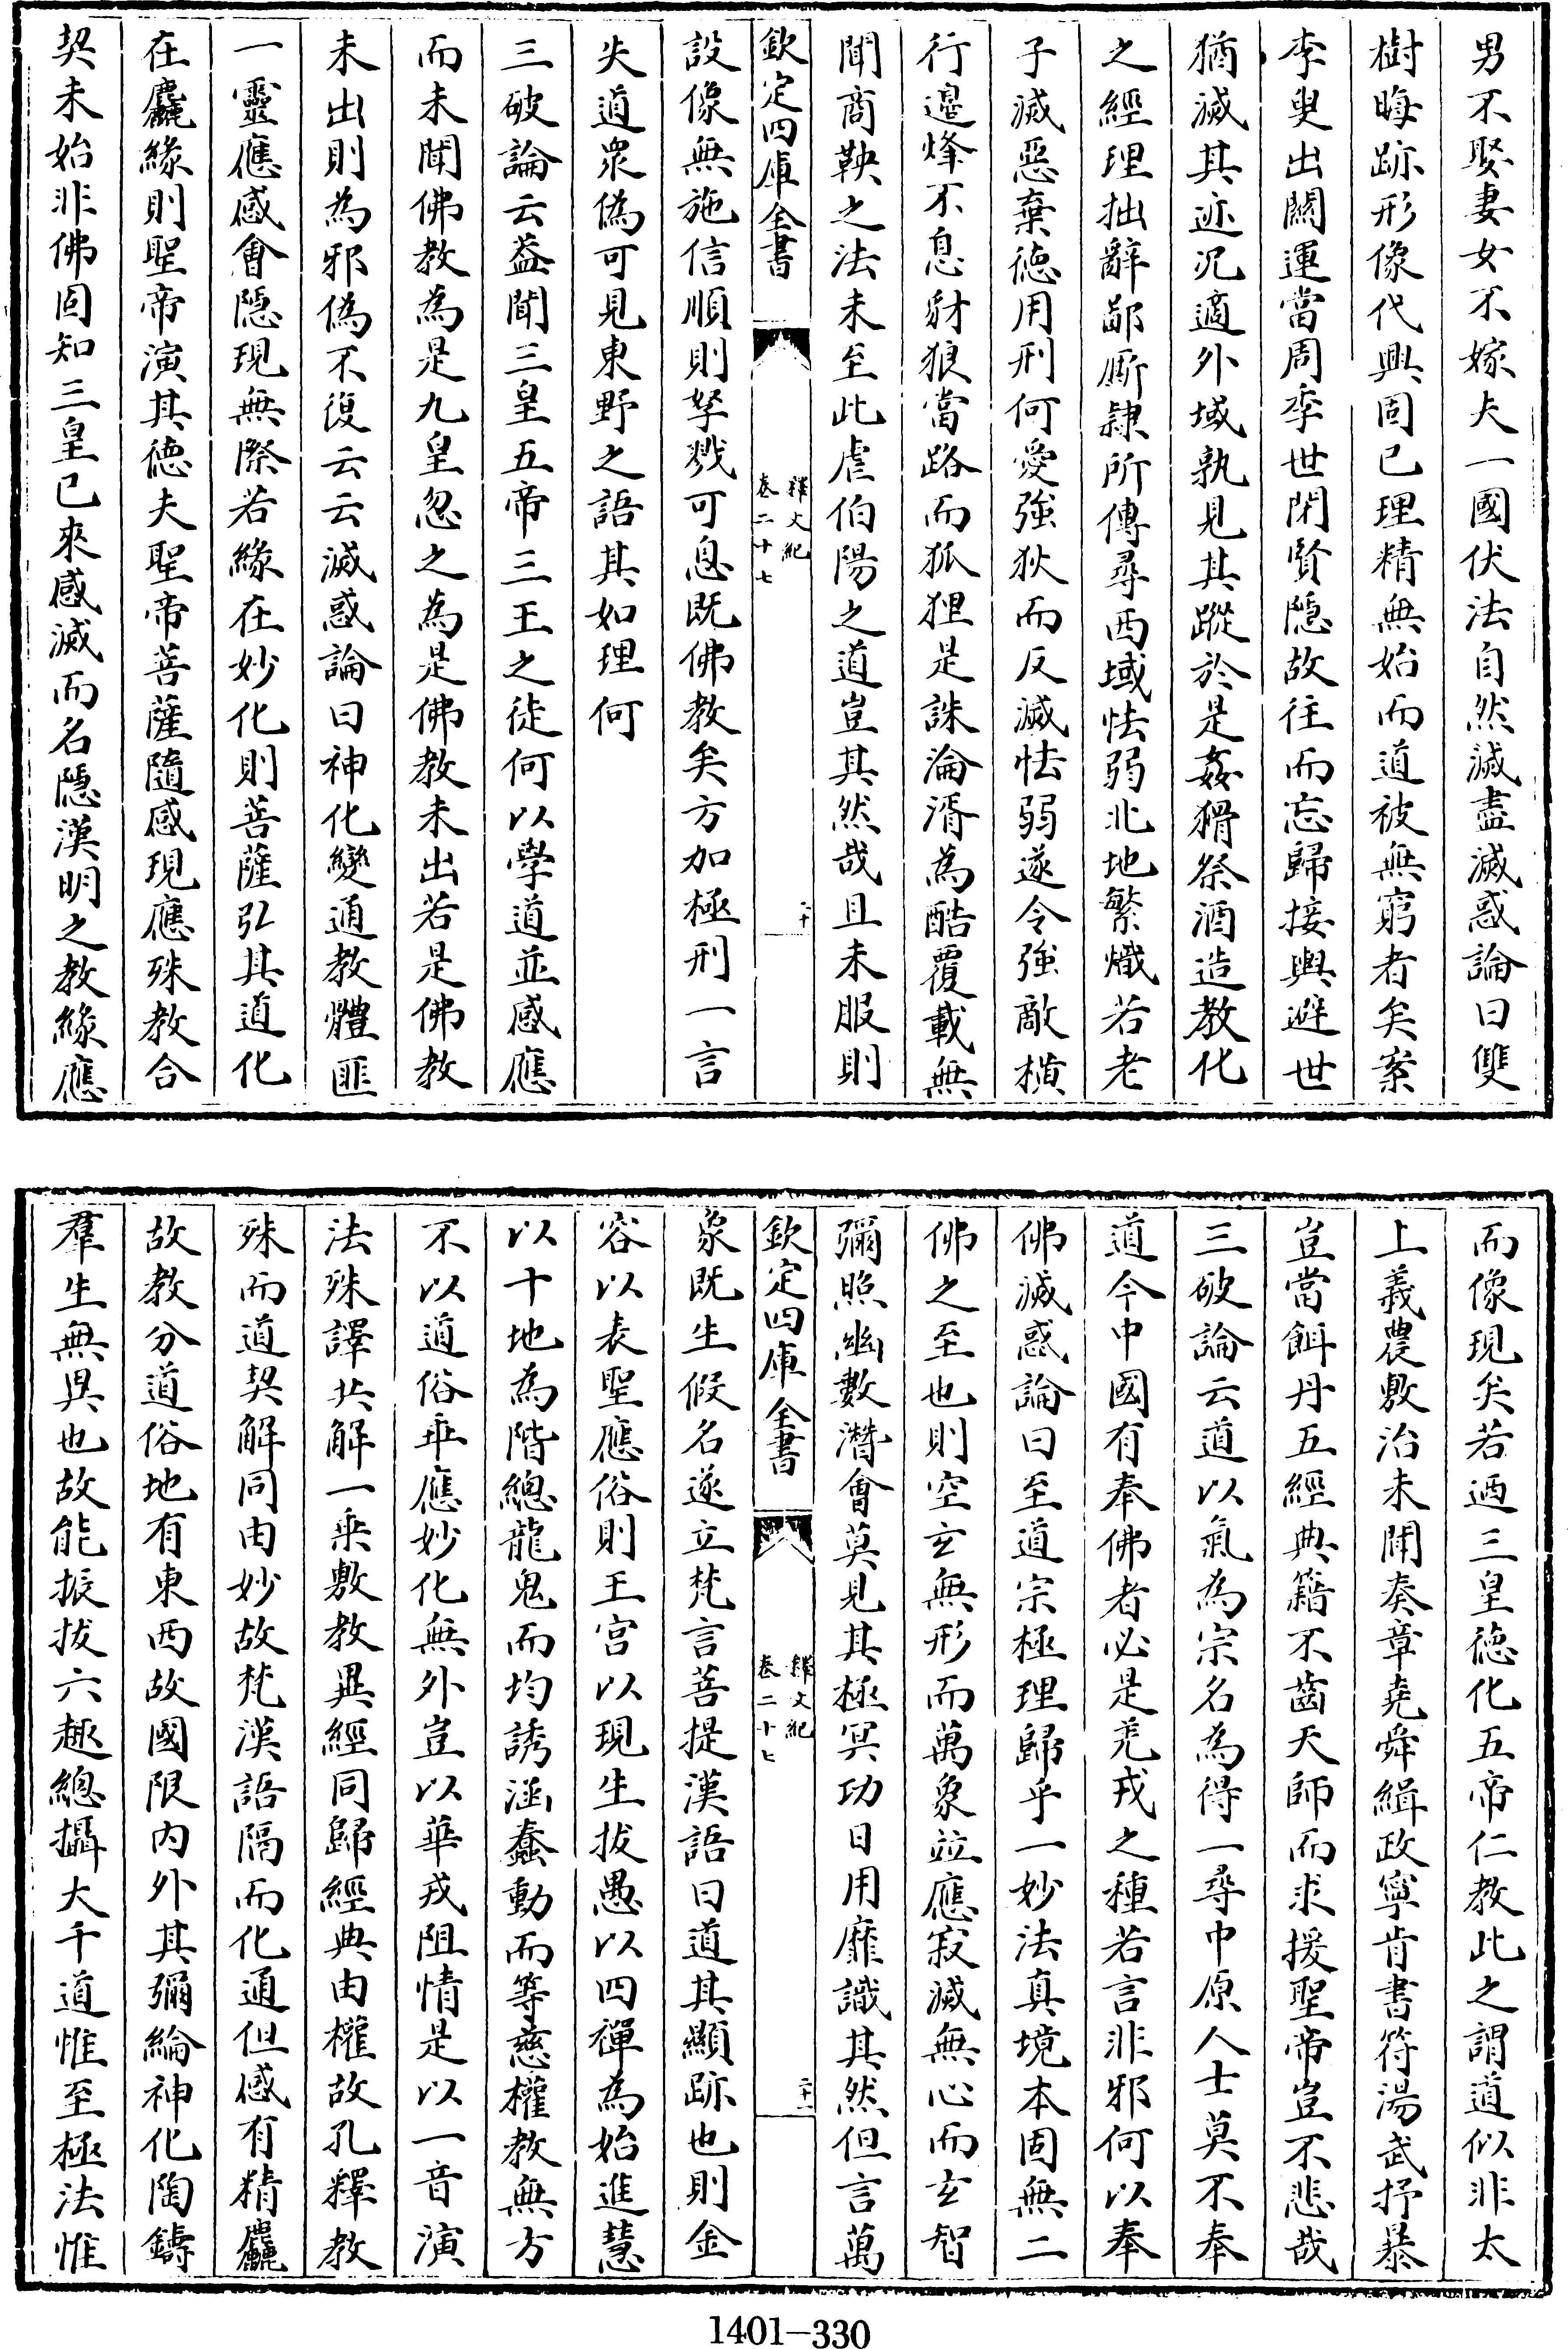 男不娶妻女不嫁夫一國伏法自然滅盡滅惑論曰雙
樹晦跡形像代興固已理精無始而道被無窮者矣案
李叟出關運當周季世閉賢隠故往而忘歸接輿避世
猶滅其迹况適外域孰見其蹤於是姦猾祭酒造教化
之經理拙辭鄙厮隷所傳尋西域怯弱北地繁熾若老
子滅惡棄徳用刑何愛強狄而反滅怯弱遂令強敵横
行邉烽不息豺狼當路而狐狸是誅淪湑為酷覆載無
聞商鞅之法未至此虐伯陽之道豈其然哉且未服則
欽定四庫全書
釋文紀
卷二十七
二十
設像無施信順則孥戮可息既佛教矣方加極刑一言
失道衆偽可見東野之語其如理何
三破論云葢聞三皇五帝三王之徒何以學道並感應
而未聞佛教為是九皇忽之為是佛教未出若是佛教
未出則為邪偽不復云云滅惑論曰神化變通教體匪
一靈應感㑹隠現無際若緣在妙化則菩薩弘其道化
在麤緣則聖帝演其徳夫聖帝菩薩隨感現應殊教合
契未始非佛固知三皇已來感滅而名隠漢明之教緣應
而像現矣若迺三皇徳化五帝仁教此之謂道似非太
上羲農敷治未聞奏章堯舜緝政寧肯書符湯武抒暴
豈當餌丹五經典籍不齒天師而求援聖帝豈不悲哉
三破論云道以氣為宗名為得一尋中原人士莫不奉
道今中國有奉佛者必是羌戎之種若言非邪何以奉
佛滅惑論曰至道宗極理歸乎一妙法真境本固無二
佛之至也則空玄無形而萬象竝應寂滅無心而玄智
彌照幽數潛㑹莫見其極冥功日用靡識其然但言萬
欽定四庫全書
釋文紀
卷二十七
二十一
象既生假名遂立梵言菩提漢語曰道其顯跡也則金
容以表聖應俗則王宫以現生拔愚以四禪為始進慧
以十地為階總龍鬼而均誘涵蠢動而等慈權教無方
不以道俗乖應妙化無外豈以華戎阻情是以一音演
法殊譯共解一乘敷教異經同歸經典由權故孔釋教
殊而道契解同由妙故梵漢語隔而化通但感有精麤
故教分道俗地有東西故國限内外其彌綸神化陶鑄
羣生無異也故能振拔六趣總攝大千道惟至極法惟
1401-330